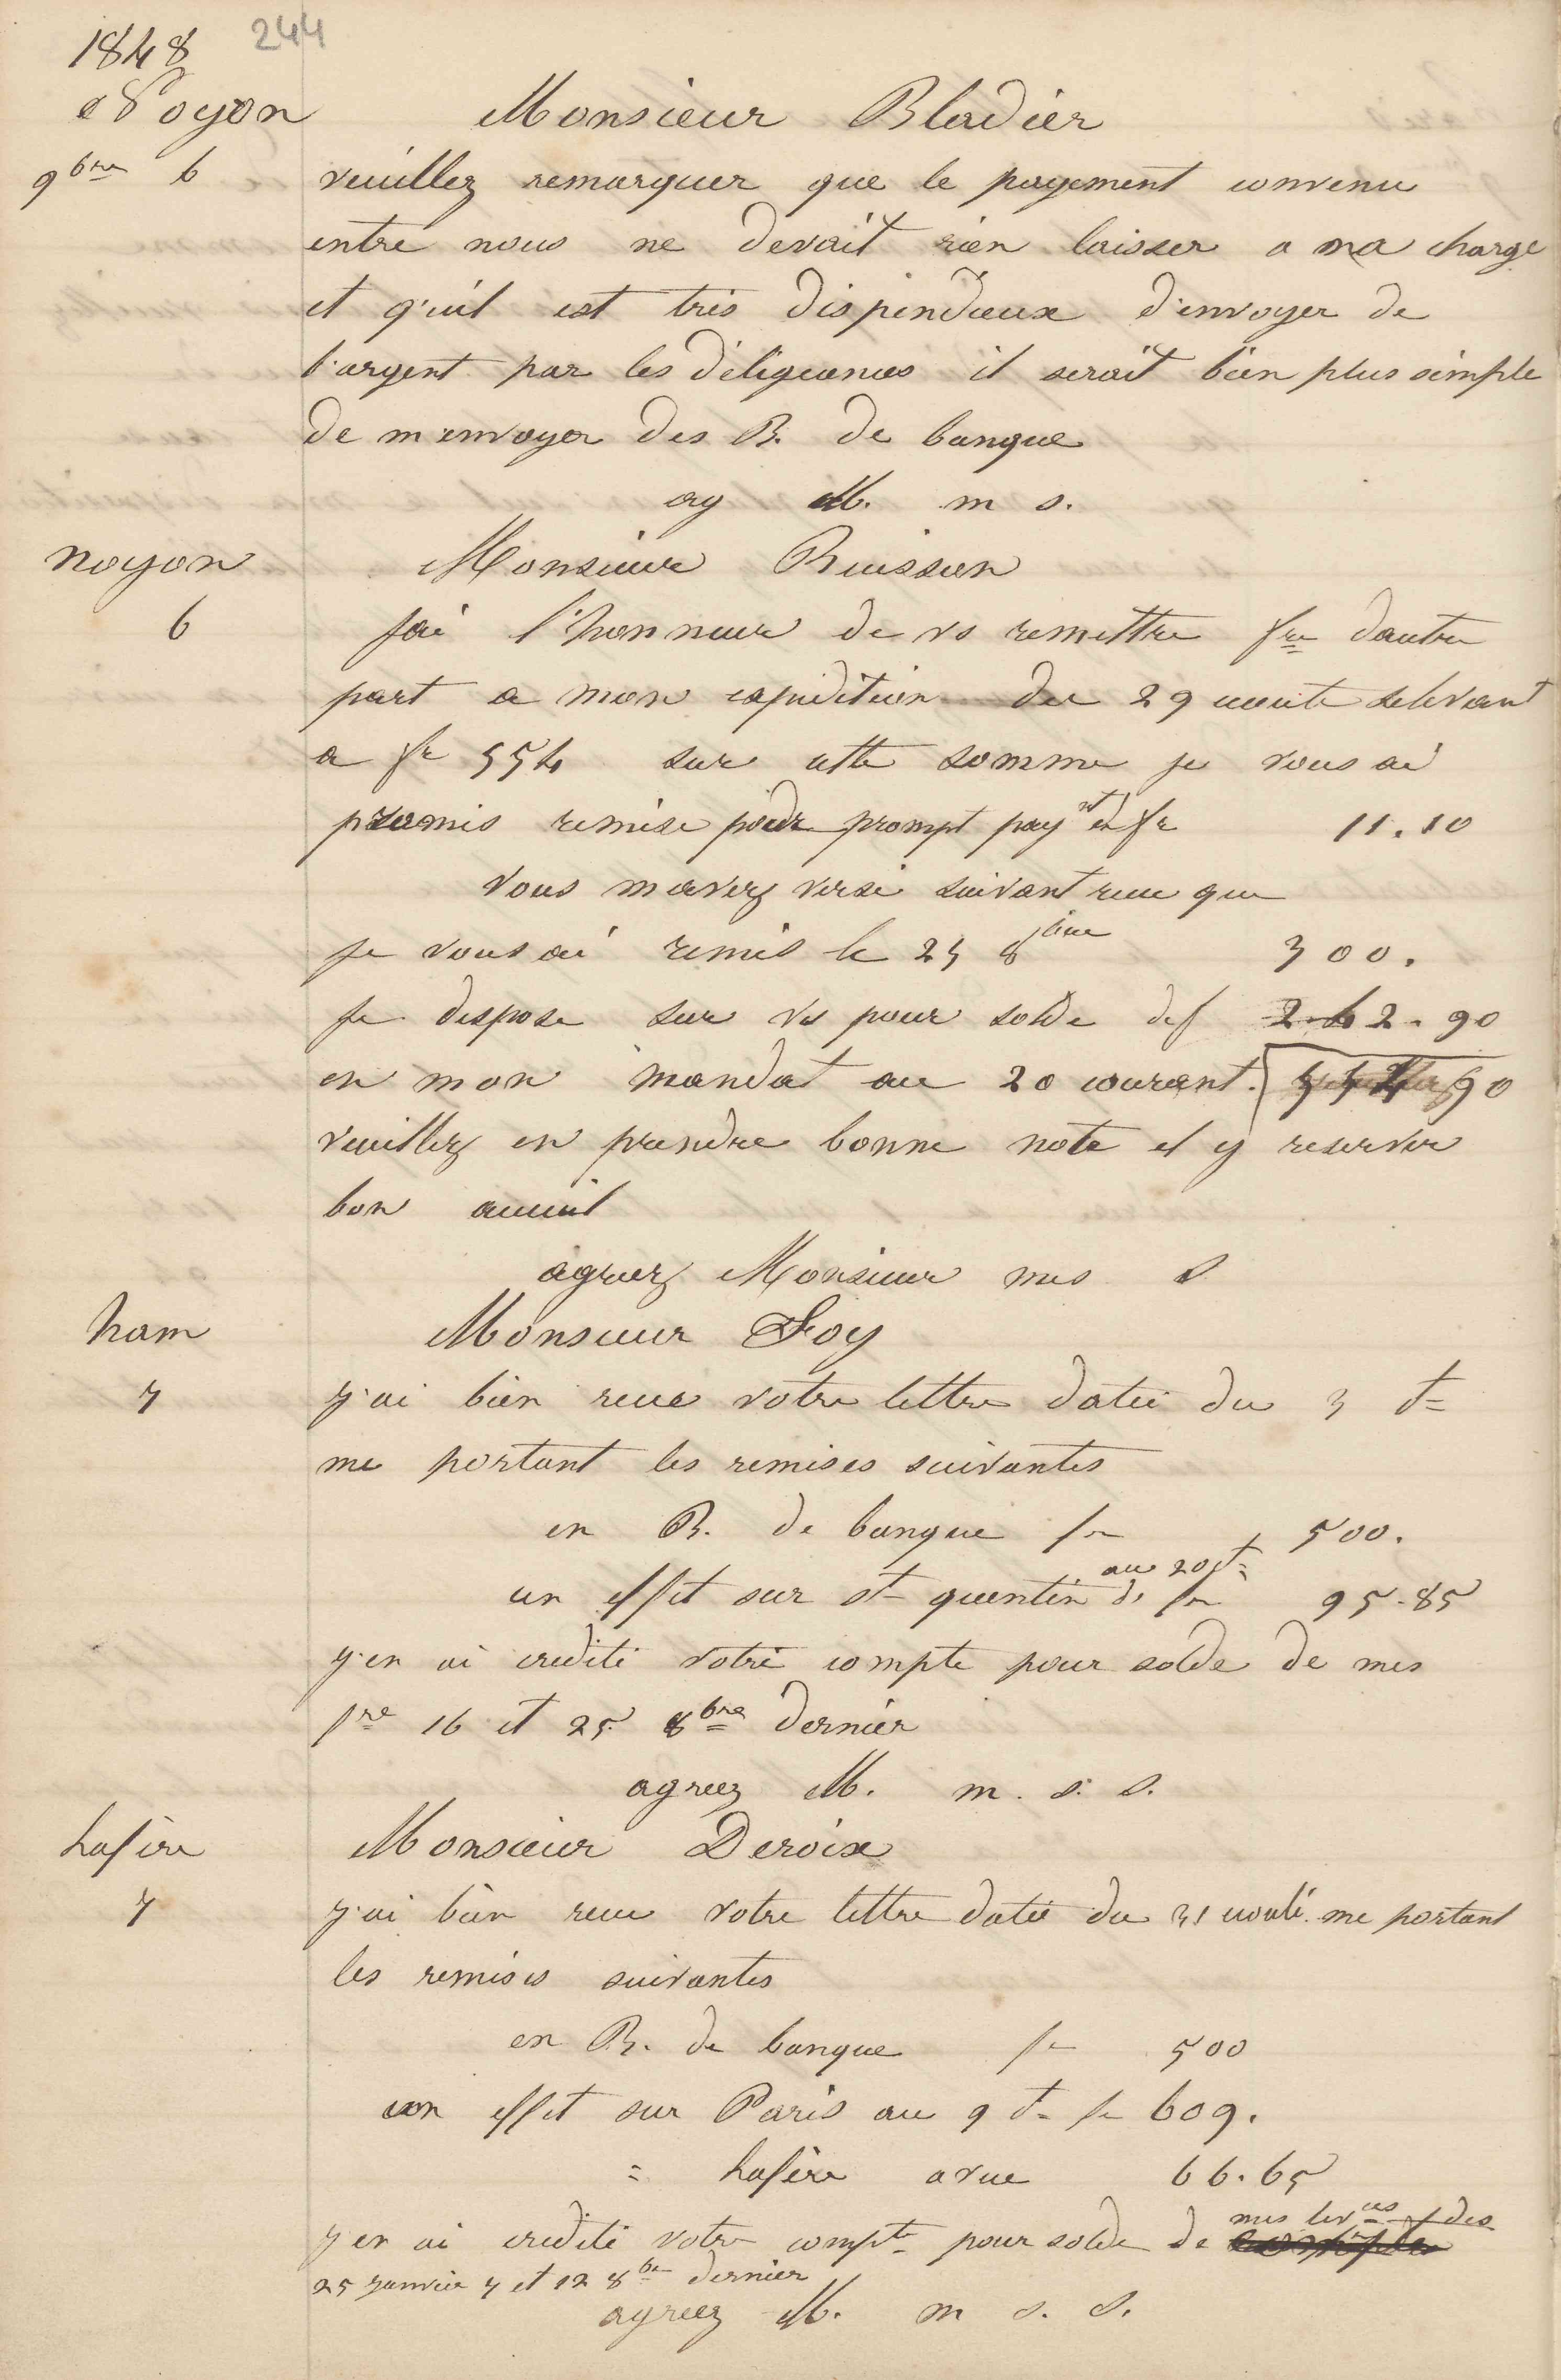 1848 244
Noyon Monsieur Bladier
9bre 6 veuillez remarquer que le payement convenu
entre nous ne devait rien laisser a ma charge
et q'uil est très dispendieux d'envoyer de
l'argent par les déligeances il serait bien plus simple
de m'envoyer des B. de banque
ag M. m s.
noyon Monsieur Buisson
6 j'ai l'honneur de vs remettre fre d'autre
part a mon expédition du 29 écoulé selevant
a fr 554 sur cette somme je vous ai
promis remise pour prompt payt de fr 11.10
vous m'avez versé suivant recu que
je vous ai remis le 23 8bre 300.
je dispose sur vs pour solde def 242.90
en mon mandat au 20 courant. 90
veuillez en prendre bonne note et y reserver
bon acceuil
agreez Monsieur mes s
ham Monsieur Foy
7 j'ai bien recu votre lettre datée du 3 Ct
me portant les remises suivantes
en B. de banque fr 500.
au 20 Ct
un effet sur st quentin de fr 95.85
j'en ai credité votre compte pour solde de mes
fre 16 et 25 8bre dernier
agreez M. m. s. s.
lafère Monsieur Deroix
7 j'ai bien recu votre lettre datée du 31 écoulé me portant
les remises suivantes
en B. de banque fr 500
un effet sur Paris au 9 Ct fr 609.
= lafère a vue 66.65
mes livces des
j'en ai credité votre compte pour solde de compte
25 janvier 7 et 12 8bre dernier
agreez M. m s. s.